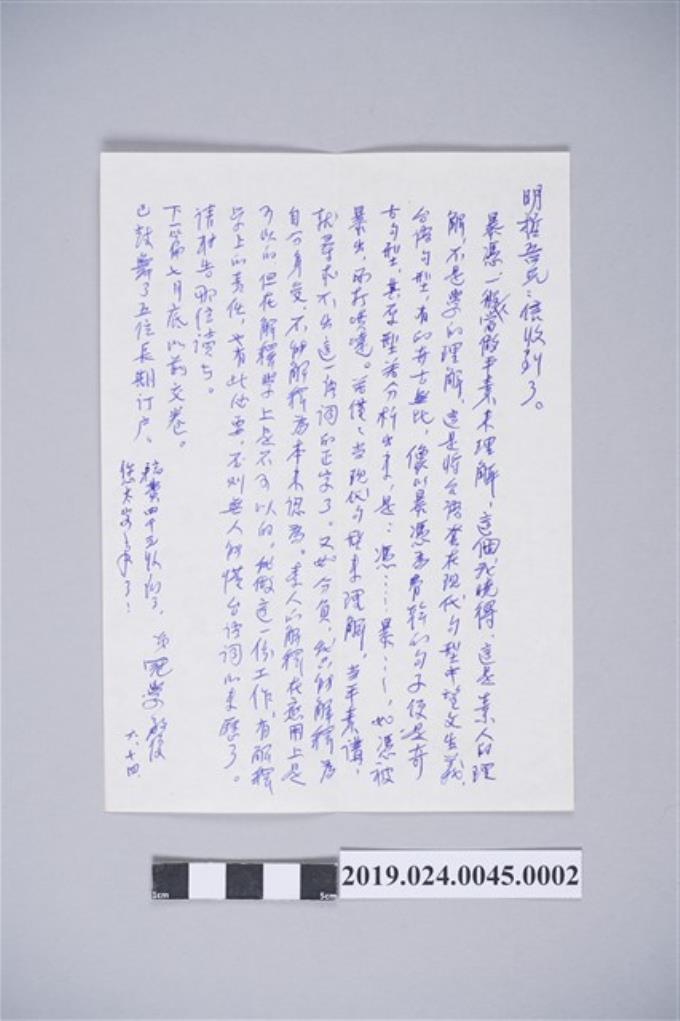 明哲吾兄：信收到了。
暴憑一般當做平素來理解，這個我曉得，這是素人的理
解，不是學的理解，這是將台語套在現代句型中望文生義。
台語句型，有的奇古無比，像以暴憑為骨幹的句子便是奇
古句型，其原型若分析出來，是：憑……暴……，如憑被
暴出，雨打。若僅當現代句型來理解，當平素講，
就尋求不出這一語詞的正字了。又如分負，我只能解釋為
自分身受，不能解釋為本來認為。素人的解釋在應用上是
可以的，但在解釋學上是不可以的，我做這一份工作，有解釋
學上的責任，也有此必要，否則無人能懂台語詞的來歷了。
請轉告那位讀者。
下一篇七月底以前交卷。
已鼓舞了五位長期訂户、
稿費四千五收到了，
您太客氣了！
弟 冠學敬復
六、十四
2019.024.0045.0002
1cm
5cm